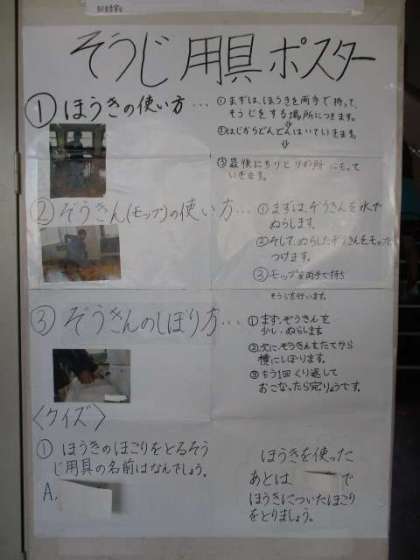 そうじ用具ポスター
①ほうきの使い方…
①まずは、ほうきを両手で持って、
そうじをする場所につきます。
②はじからどんどんはいていきます。
③最後にちりとりの所にもって
いきます。
②ぞうきん(モップ)の使い方…
①まずは、ぞうきんを水で
ぬらします。
②そして、ぬらしたぞうきんをモップに
つけます。
③モップを両手で持ち
そうじを行います。
③ぞうきんのしぼり方…
①まず、ぞうきんを
少し、ぬらします。
②次に、ぞうきんをたてから
横にしぼります。
③もう1回くり返して
おこなったら完りょうです。
〈クイズ〉
①ほうきのほこりをとるそう
じ用具の名前はなんでしょう。
A.
ほうきを使った
あとは
で
ほうきについたほこり
をとりましょう。